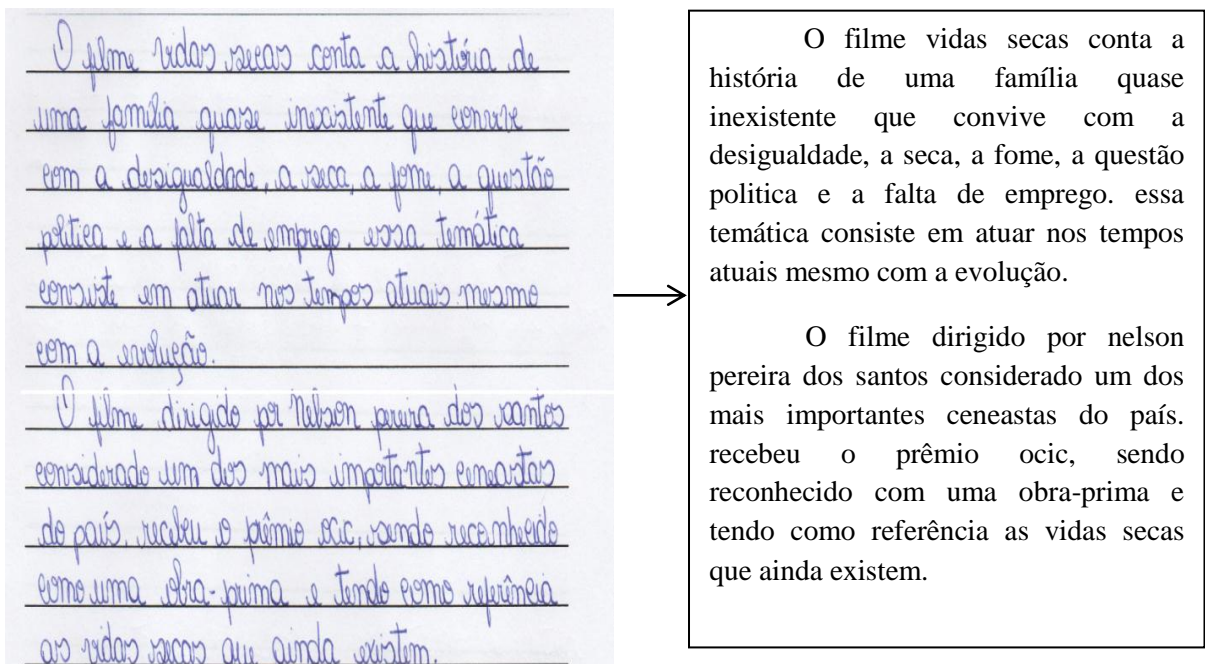 O filme vidas secas conta a história de
uma família quase inexistente que convive
com a desigualdade, a seca, a fome, a questão
politica e a falta de emprego. essa temática
consiste em atuar nos tempos atuais mesmo
com a evolução.
O filme dirigido por nelson pereira dos santos
considerado um dos mais importantes ceneastas
do país. recebeu o prêmio ocic, sendo reconhecido
como uma obra-prima e tendo como referência
as vidas secas que ainda existem.
O filme vidas secas conta a
história de uma família quase
inexistente que convive com a
desigualdade, a seca, a fome, a questão
politica e a falta de emprego. essa
temática consiste em atuar nos tempos
atuais mesmo com a evolução.
O filme dirigido por nelson
pereira dos santos considerado um dos
mais importantes ceneastas do país.
recebeu o prêmio ocic, sendo
reconhecido com uma obra-prima e
tendo como referência as vidas secas
que ainda existem.